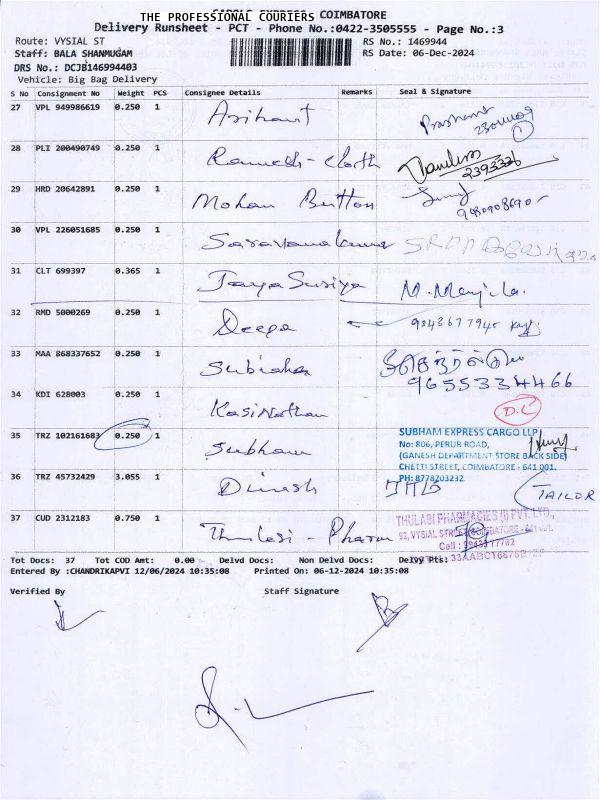 THE PROFESSIONAL COURIERS COIMBATORE
Delivery Runsheet - PCT - Phone No.:0422-3505555 - Page No.:3
Route: VYSIAL ST RS No.: 1469944
Staff: BALA SHANMUGAM RS Date: 06-Dec-2024
DRS No.: DCJB146994403
Vehicle: Big Bag Delivery
S No Consignment No Weight PCS Consignee Details Remarks Seal & Signature
27 VPL 949986619 0.250 1 Arihant Prashant
28 PLI 200490749 0.250 1 Ramesh - cloth 2393326
29 HRD 20642891 0.250 1 Mohan Button
30 VPL 226051685 0.250 1 Saravanakumar
31 CLT 699397 0.365 1 Jaya Suriya M. Manjula.
32 RMD 5000269 0.250 1 Deepa
33 MAA 868337652 0.250 1 Subiksha
9655334466
34 KDI 628003 0.250 1 Kasinathan D.C
35 TRZ 102161683 0.250 1 Subham
SUBHAM EXPRESS CARGO LLP
No: 806, PERUR ROAD,
(GANESH DEPARTMENT STORE BACK SIDE)
CHETTI STREET, COIMBATORE - 641 001.
PH: 8778203232
36 TRZ 45732429 3.055 1 Dinesh TAILOR
37 CUD 2312183 0.750 1 Thulasi - Pharm
THULASI PHARMACIES (I) PVT. LTD.,
92, VYSIAL STREET, COIMBATORE
Tot Docs: 37 Tot COD Amt: 0.00 Delvd Docs: Non Delvd Docs: Delvy Pts:
Entered By :CHANDRIKAPVI 12/06/2024 10:35:08 Printed On: 06-12-2024 10:35:08
Verified By Staff Signature